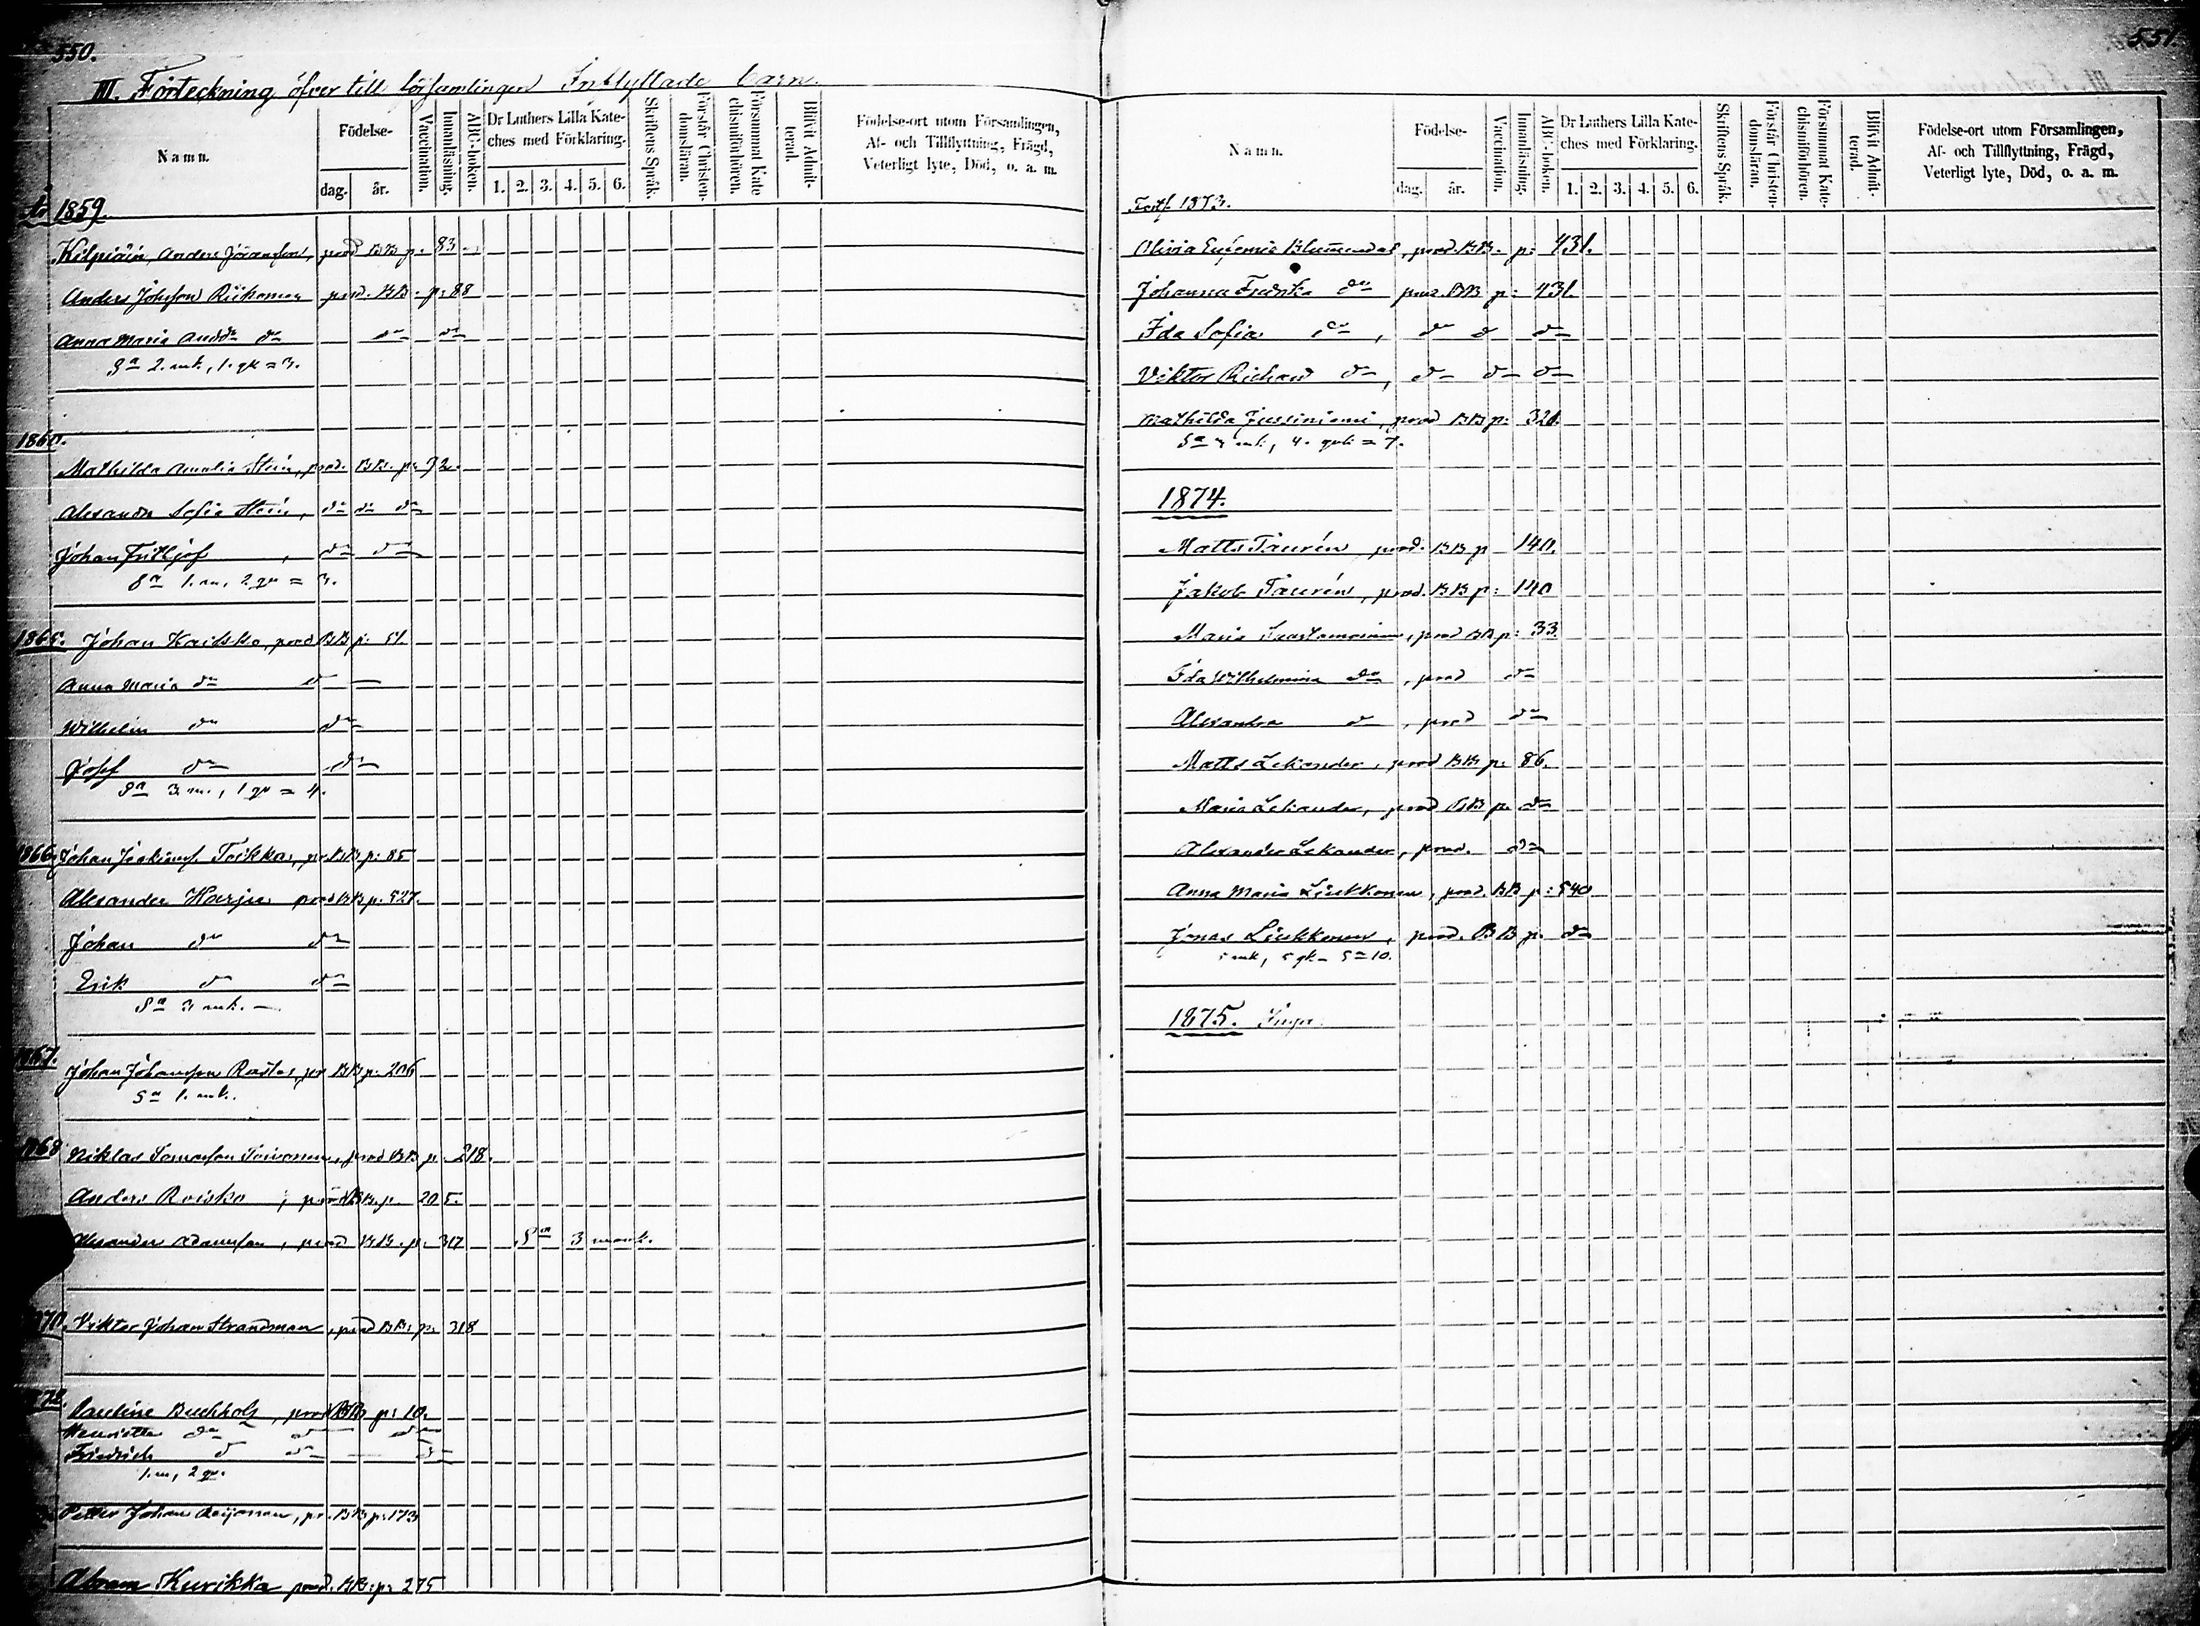 550.
III. Förteckning öfver till församlingen Inflyttade barn.
Namn.
Födelse-
dag. år.
Vaccination.
Innanläsning.
ABC-boken.
Dr Luthers Lilla Kate-
ches med Förklaring.
1. 2. 3. 4. 5. 6.
Skriftens Språk.
Förstår Christen-
domsläran.
Försummat Kate-
chismiförhören.
Blifvit Admit-
terad.
Födelse-ort utom Församlingen,
Af- och Tillflyttning, Frägd,
Veterligt lyte, Död, o. a. m.
1859.
Kilpiäin, Anders Göransson, prod BB p: 83
Anders Johnson Riikonen prod. BB. p: 88
Anna Maria Andsdr do do do
Sa 2. mk., 1. qk = 3.
1860.
Mathilda Amalia Stein, prod. BB. p: 72.
Alexandra Sofia Stein, do do do
Johan Fritljof, do do
Sa 1. m, 2. qk = 3.
1865. Johan Kaisko, prod BB p: 51.
Anna Maria do do
Wilhelm do do
Josef do do
Sa 3. m., 1 qk = 4.
1866. Johan Joakimsf. Toikka, pr. BB p: 85
Alexander Harju prod BB p: 527.
Johan do do
Erik do do
Sa 3 mk. —
1867.
Johan Johansson Rastas, pr BB p: 206
Sa 1. mk.
1868 Niklas Tomasson Toivonen, prod BB p. 218.
Anders Roisko, prod BB. p. 205.
Alexander Adamsson, prod BB. p: 317 Sa 3 mank.
1870. Viktor Johan Strandman, prod BB: p: 318
1872.
Pauline Buchholz, prod BB p: 10.
Henriette do do do
Friedrich do do do
1. m, 2 qv.
Petter Johan Reijonen, pr. BB p: 173
Abram Kurikka prod. BB: p: 275
551.
Namn.
Födelse-
dag. år.
Vaccination.
Innanläsning.
ABC-boken.
Dr Luthers Lilla Kate-
ches med Förklaring.
1. 2. 3. 4. 5. 6.
Skriftens Språk.
Förstår Christen-
domsläran.
Försummat Kate-
chismiförhören.
Blifvit Admit-
terad.
Födelse-ort utom Församlingen,
Af- och Tillflyttning, Frägd,
Veterligt lyte, Död, o. a. m.
Fortf. 1873.
Olivia Eufemia Blumendal, prod. BB. p: 431.
Johanna Fredrika do prod. BB p: 431.
Ida Sofia do, do do do
Viktor Richard do, do do do
Mathilda Jussiniemi, prod BB p: 321.
Sa 3 mk, 4. qvk = 7.
1874.
Matts Taurén, prod. BB p 140.
Jakob Taurén, prod. BB p: 140
Maria Suortamoinen, prod BB p: 33.
Ida Wilhelmina do, prod do
Alexandra do, prod do
Matts Lekander, prod BB p: 86.
Maria Lekander, prod BB p. do
Alexander Lekander, prod. do
Anna Maria Liukkonen, prod. BB p: 540
Jonas Liukkonen, prod. BB p. do
5 mk, 5 qk — S = 10.
1875. Inga